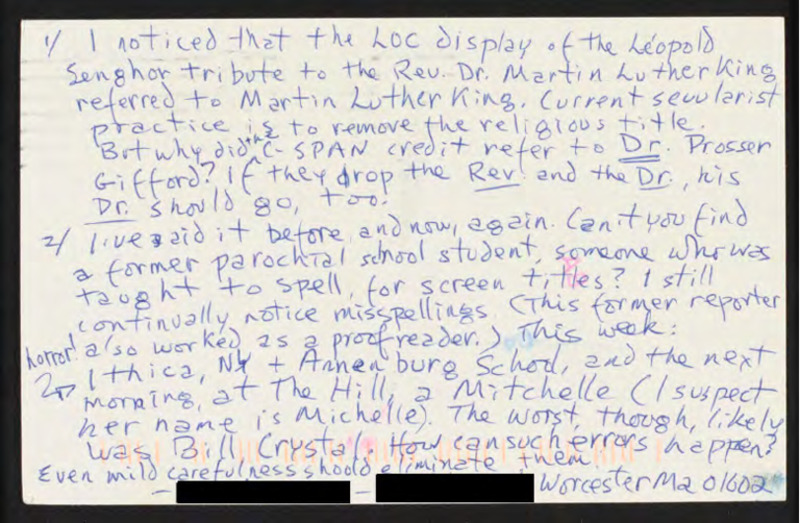 1/ I noticed that the LOC display of the Léopold
Senghor tribute to the Rev. Dr. Martin Luther King
referred to Martin Luther King. Current secularist
practice is to remove the religious title.
But why did the C-SPAN credit refer to Dr. Prosser
Gifford? If they drop the Rev. and the Dr., his
Dr. should go, too.
2/ I've said it before, and now, again. Can't you find
a former parochial school student, someone who was
taught to spell, for screen titles? I still
continually notice misspellings (This former reporter
also worked as a proofreader.) This week:
horror! Ithica, NY + Annenburg School, and the next
morning, at The Hill, a Mitchelle (I suspect
her name is Michelle). The worst, though, likely
was Bill Crystal. How can such errors happen?
Even mild carefulness should eliminate them
— — Worcester Ma 01602